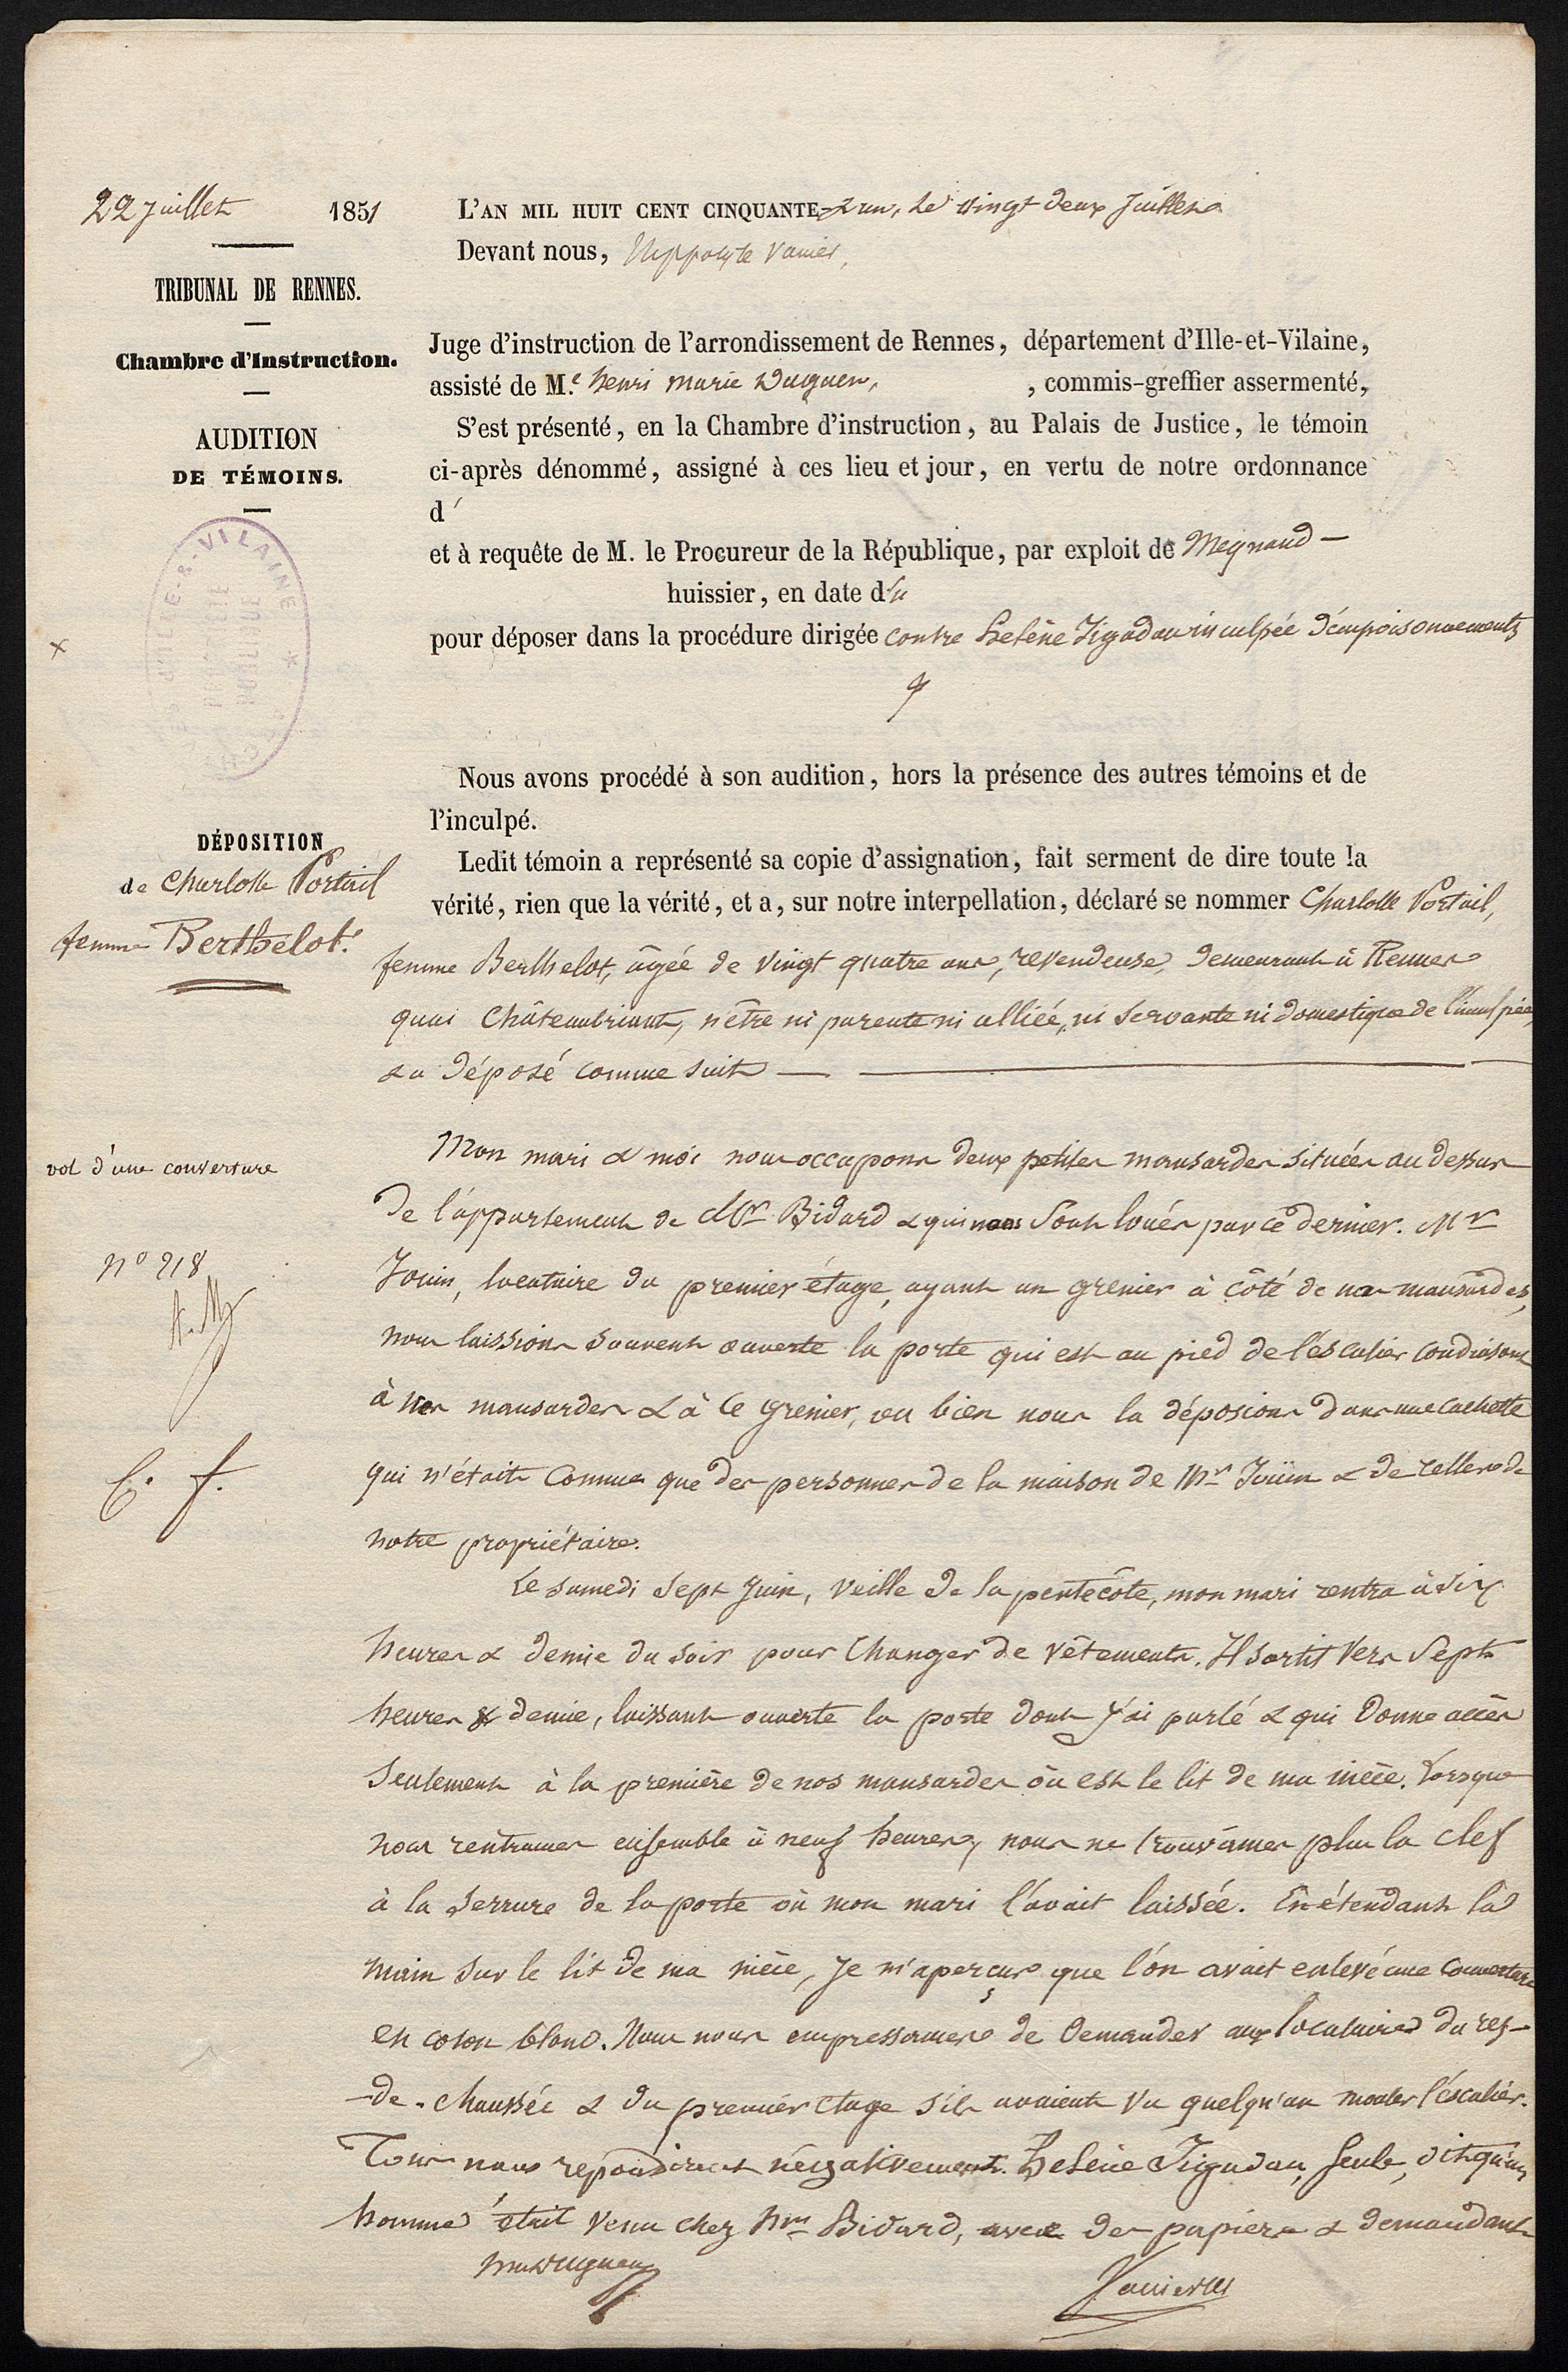 22 juillet 1851
TRIBUNAL DE RENNES.
Chambre d'Instruction.
AUDITION
DE TÉMOINS.
L'AN MIL HUIT CENT CINQUANTE-un, le vingt deux Juillet
Devant nous, Hippolyte Vanier,
Juge d'instruction de l'arrondissement de Rennes, département d'Ille-et-Vilaine,
assisté de M.e henri marie Duguen, , commis-greffier assermenté,
S'est présenté, en la Chambre d'instruction, au Palais de Justice, le témoin
ci-après dénommé, assigné à ces lieu et jour, en vertu de notre ordonnance
d
et à requête de M. le Procureur de la République, par exploit de Meynaud —
huissier, en date du
pour déposer dans la procédure dirigée contre helène Jégadau inculpée d'empoisonnements
Nous avons procédé à son audition, hors la présence des autres témoins et de
l'inculpé.
DÉPOSITION
de Charlotte Portail
femme Berthelot.
Ledit témoin a représenté sa copie d'assignation, fait serment de dire toute la
vérité, rien que la vérité, et a, sur notre interpellation, déclaré se nommer Charlotte Portail,
femme Berthelot, âgée de vingt quatre ans, revendeuse, demeurant à Rennes
quai Châteaubriant, n'être ni parente ni alliée, ni servante ni domestique de l'inculpée,
& a déposé comme suit —
vol d'une couverture
n° 218
Mon mari & moi nous occupons deux petites mansardes situées au dessus
de l'appartement de Mr Bidard & qui nous sont louées par ce dernier. Mr
Jouin, locataire du premier étage, ayant un grenier à côté de nos mansardes,
nous laissions souvent ouverte la porte qui est au pied de l'escalier conduisant
à nos mansardes & à ce grenier, ou bien nous la déposions dans une cachette
qui n'était connue que des personnes de la maison de Mr Jouin & de celles de
notre propriétaire.
Le samedi sept Juin, veille de la pentecôte, mon mari rentra à six
heures & demie du soir pour changer de vêtements. Il sortit vers sept
heures & demie, laissant ouverte la porte dont j'ai parlé & qui donne accès
seulement à la première de nos mansardes où est le lit de ma nièce. Lorsque
nous rentrames ensemble à neuf heures, nous ne trouvâmes plus la clef
à la serrure de la porte où mon mari l'avait laissée. En étendant la
main sur le lit de ma nièce, je m'aperçus que l'on avait enlevé une couverture
en coton blanc. Nous nous empressames de demander aux locataires du rez-
-de-chaussée & du premier étage s'ils avaient vu quelqu'un monter l'escalier.
Tous nous répondirent négativement. Helène Jégadau, seule, dit qu'un
homme était venu chez Mr Bidard, avec des papiers & demandant
hm Duguen
Vanier